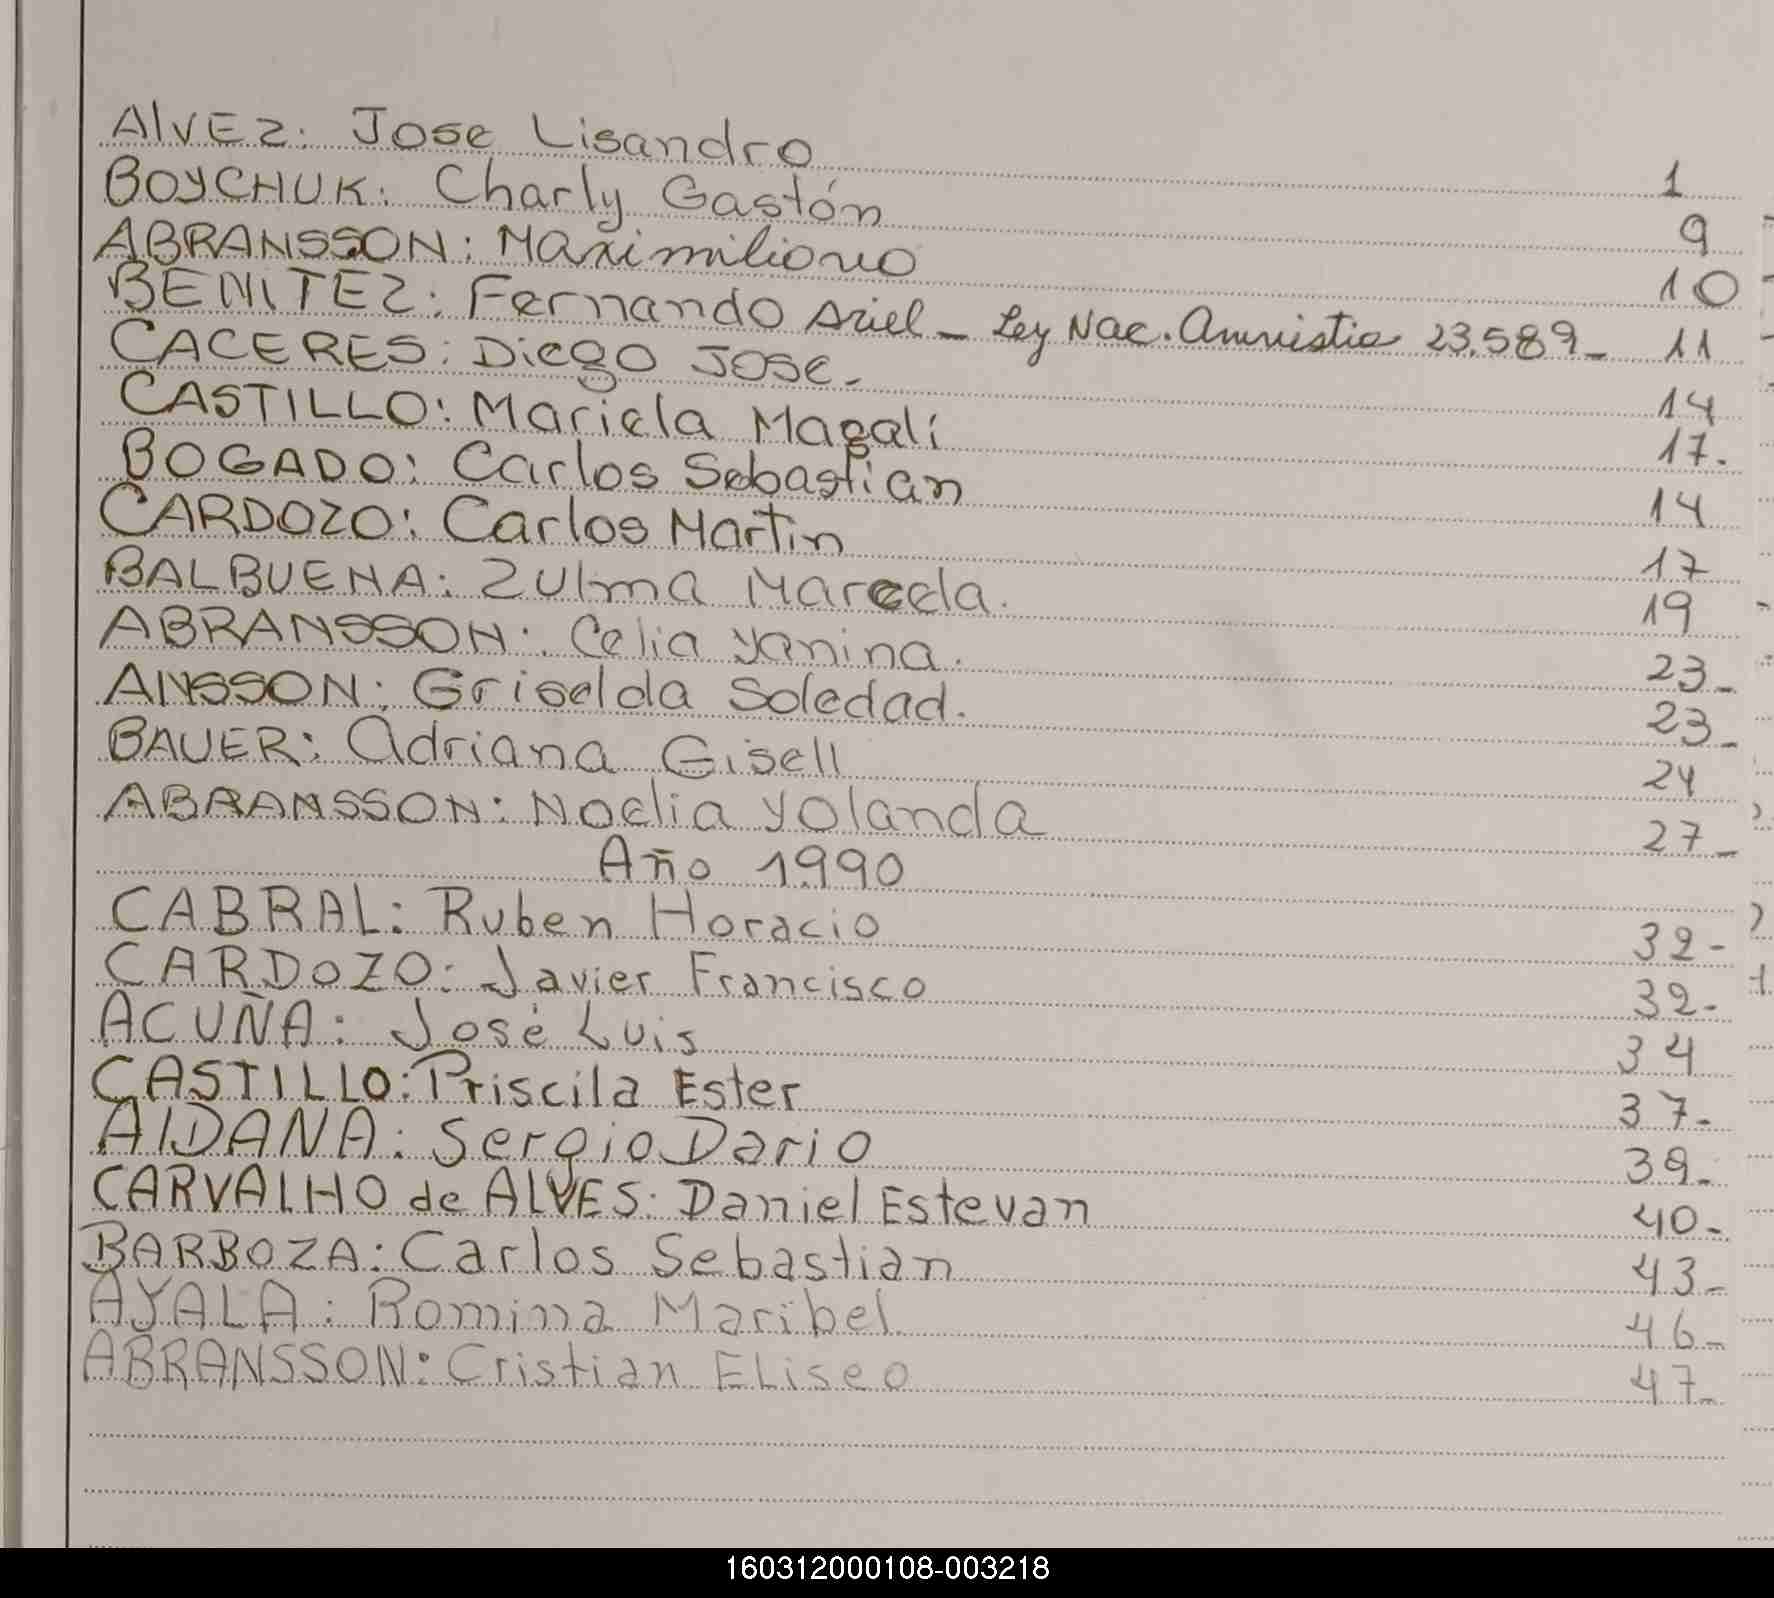 AlvEz: Jose Lisandro 1
BOYCHUK: Charly Gastón 9
ABRANSSON: Maximiliano 10
BENITEZ: Fernando Ariel - Ley Nac. Amnistia 23.589- 11
CACERES: Diego Jose. 14
CASTILLO: Mariela Magali 17.
BOGADO: Carlos Sebastian 14
CARDOZO: Carlos Martin 17
BALBUENA: Zulma Marcela. 19
ABRANSSON: Celia Yanina. 23-
ANSSON: Griselda Soledad. 23-
BAUER: Adriana Gisell 24
ABRANSSON: Noelia Yolanda 27-
Año 1.990
CABRAL: Ruben Horacio 32-
CARDOZO: Javier Francisco 32-
ACUÑA: José Luis 34
CASTILLO: Priscila Ester 37-
AlDANA: Sergio Dario 39-
CARVALHO de ALVES: Daniel Estevan 40-
BARBOZA: Carlos Sebastian 43-
AYALA: Romina Maribel 46-
ABRANSSON: Cristian Eliseo 47-
160312000108-003218